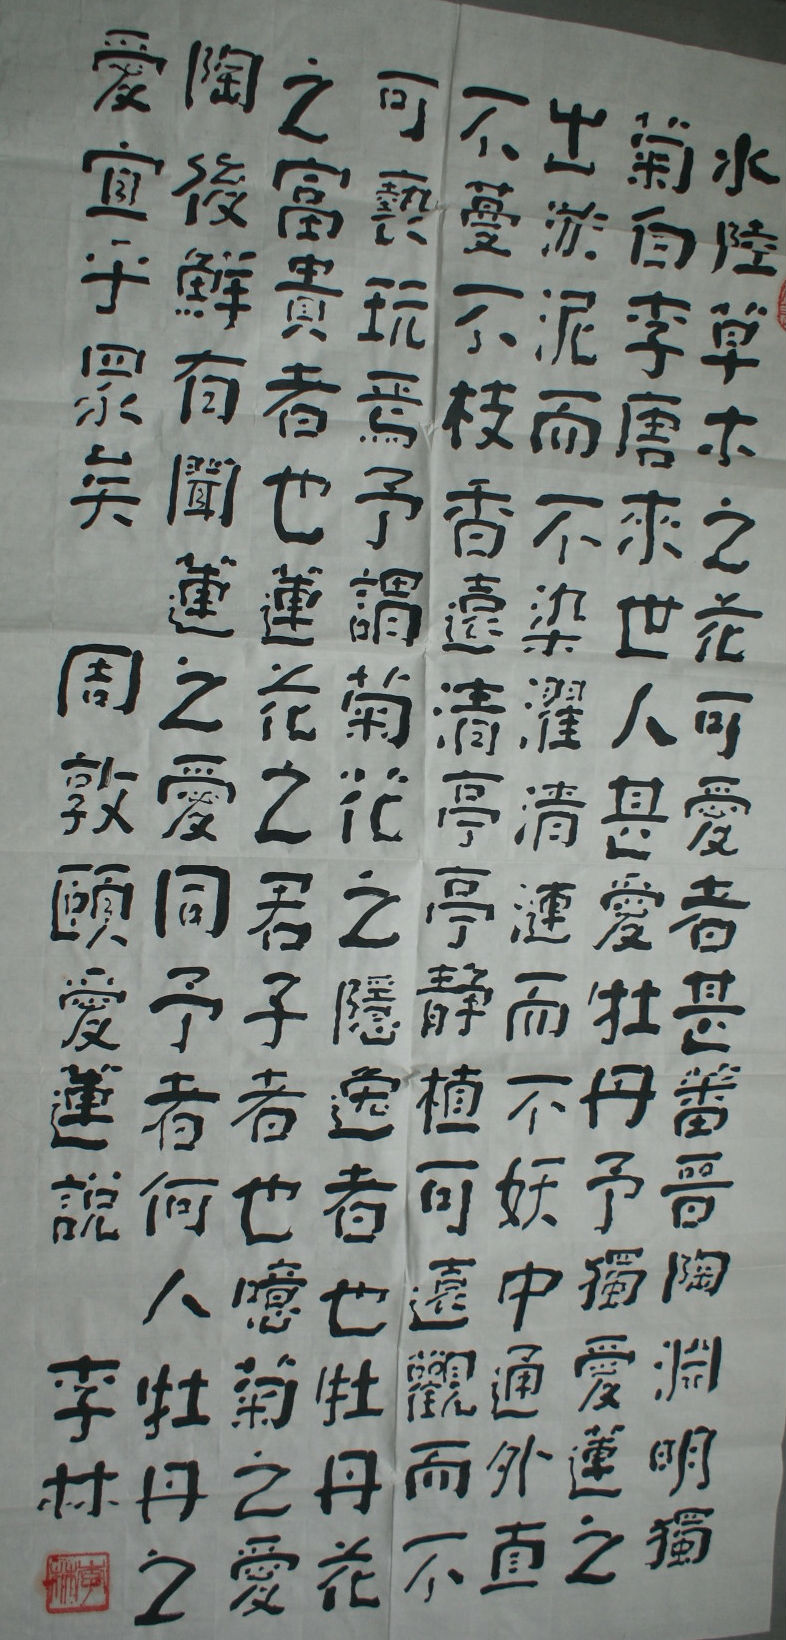 水陸草木之花可愛者甚蕃晉陶淵明獨
菊自李唐來世人甚愛牡丹予獨愛蓮之
出淤泥而不染濯清漣而不妖中通外直
不蔓不枝香遠清亭亭静植可遠觀而不
可褻玩焉予謂菊花之隱逸者也牡丹花
之富貴者也蓮花之君子者也噫菊之愛
陶後鮮有聞蓮之愛同予者何人牡丹之
愛宜乎眾矣 周敦頤愛蓮說 李林